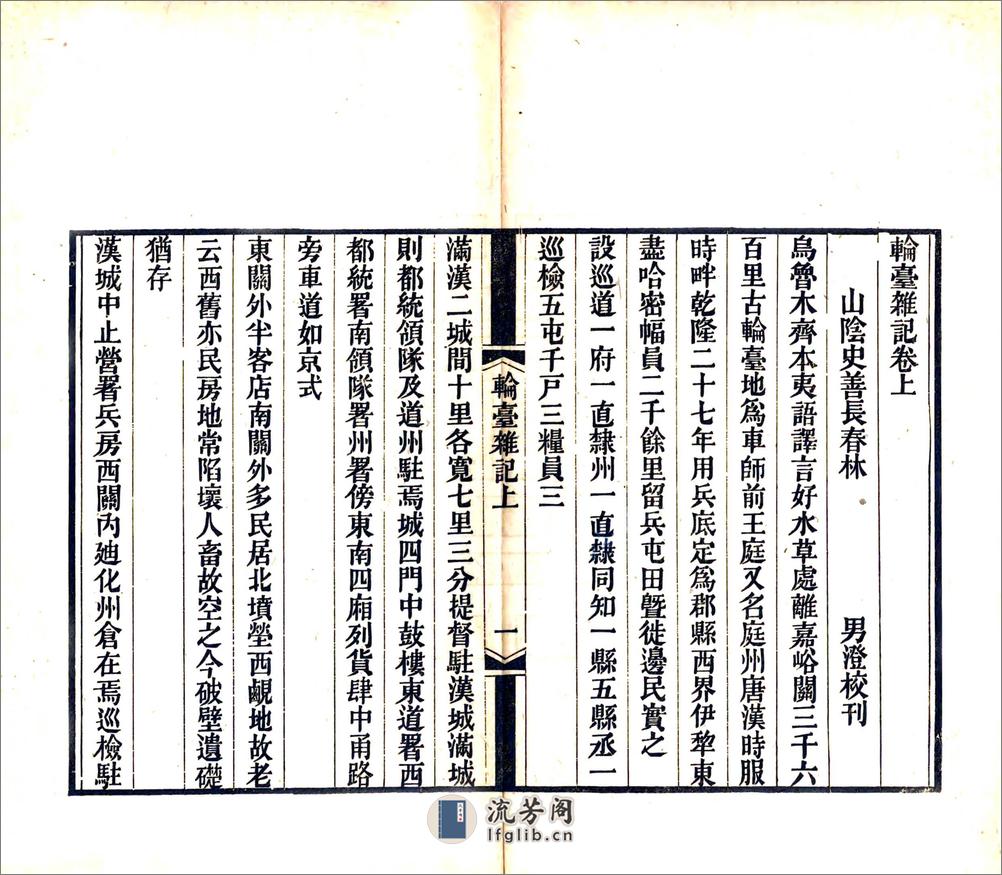 輪臺雜記卷上
山陰史善長春林　男澄校刊
烏魯木齊本夷語譯言好水草處離嘉峪關三千六
百里古輪臺地為車師前王庭又名庭州唐漢時服
時畔乾隆二十七年用兵底定為郡縣西界伊犂東
盡哈密幅員二千餘里留兵屯田曁徙邊民實之
設巡道一府一直隸州一直隸同知一縣五縣丞一
巡檢五屯千戶三糧員三
輪臺雜記上
一
滿漢二城間十里各寬七里三分提督駐漢城滿城
則都統領隊及道州駐焉城四門中鼓樓東道署西
都統署南領隊署州署傍東南四廂列貨肆中甬路
旁車道如京式
東關外半客店南關外多民居北墳塋西覷地故老
云西舊亦民房地常陷壞人畜故空之今破壁遺礎
猶存
漢城中止營署兵房西關內廸化州倉在焉巡檢駐
流芳阁
lfglib.cn